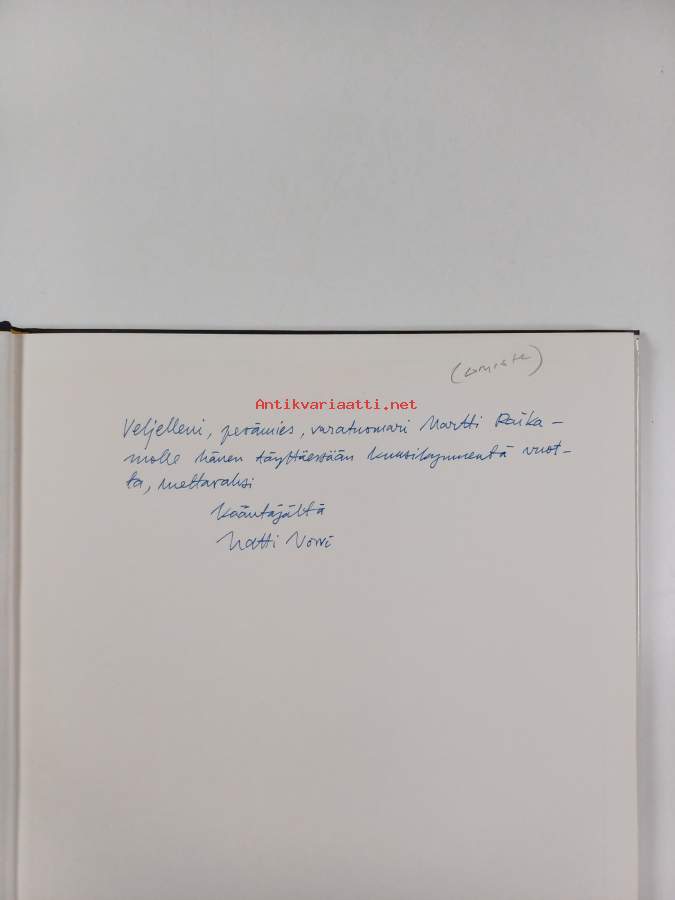 (omiste)
Antikvariaatti.net
Veljelleni, perämies, varatuomari Martti Raika-
molle hänen täyttäessään kuusikymmentä vuot-
ta, mettäväksi
Kääntäjältä
Matti Norri